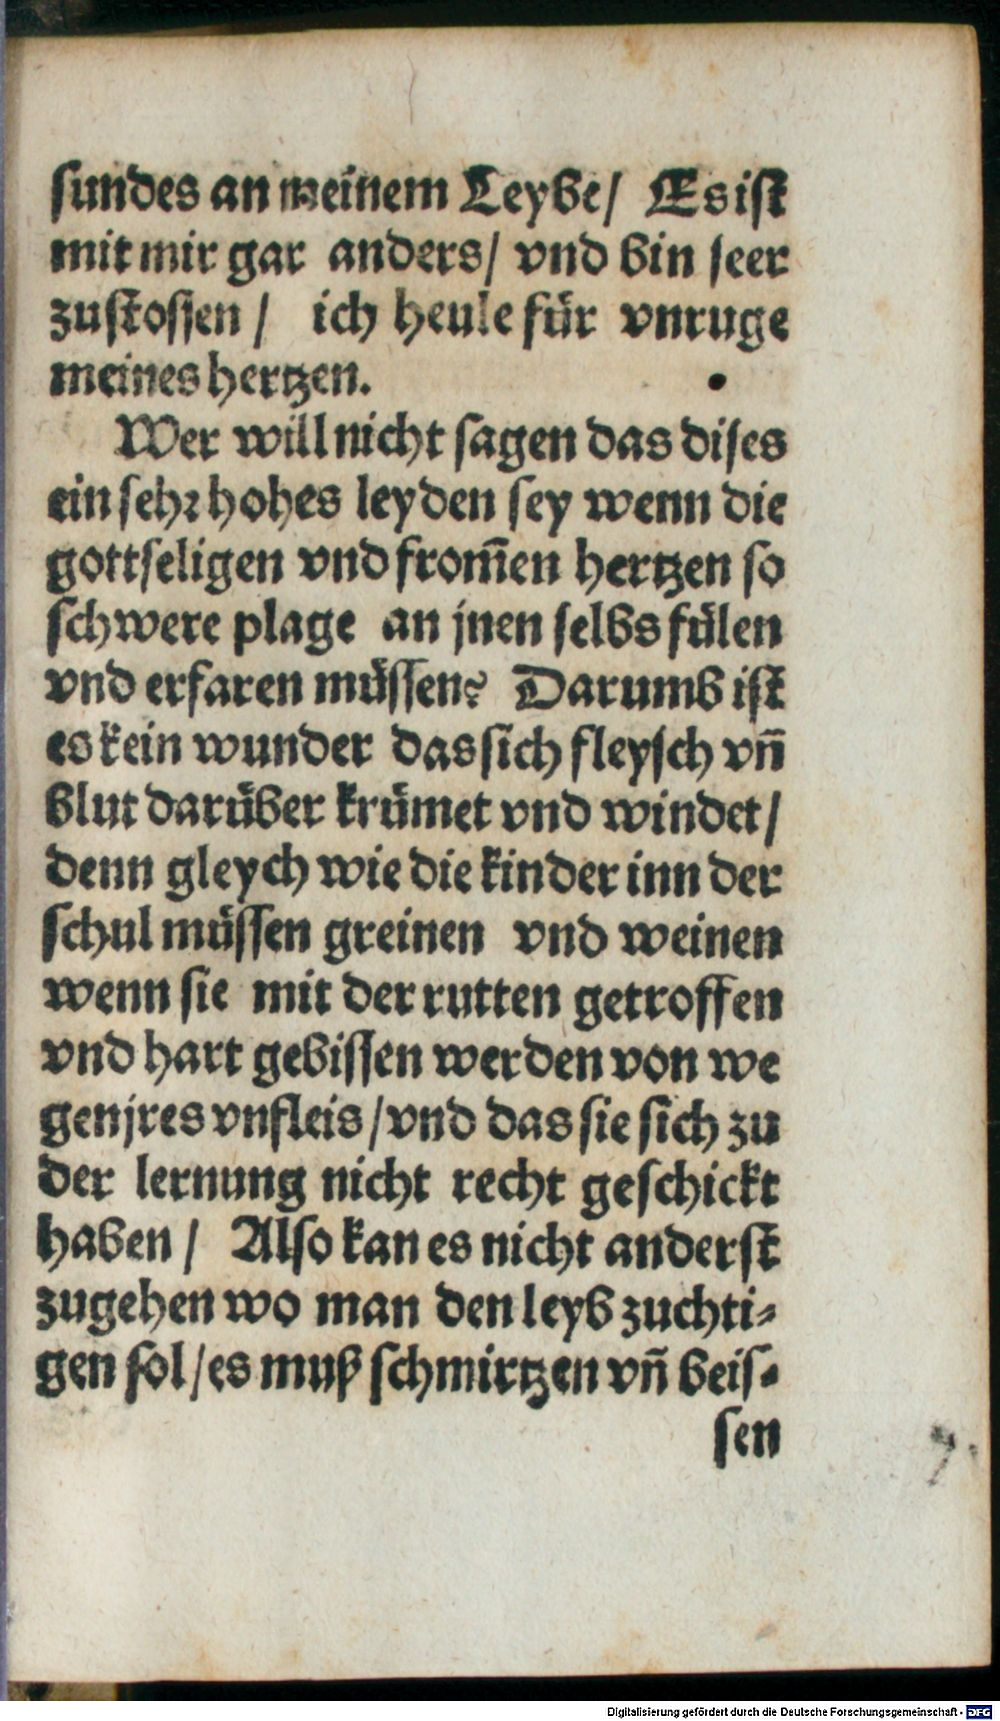 sundes an meinem Leybe/ Es ist
mit mir gar anders/ vnd bin seer
zustossen / ich heule für vnruge
meines hertzen.
Wer will nicht sagen das dises
ein sehr hohes leyden sey wenn die
gottseligen vnd from̃en hertzen so
schwere plage an jnen selbs fülen
vnd erfaren müssen? Darumb ist
es kein wunder das sich fleysch vñ
blut darüber krümet vnd windet/
denn gleych wie die kinder inn der
schul müssen greinen vnd weinen
wenn sie mit der rutten getroffen
vnd hart gebissen werden von we
gen jres vnfleis /vnd das sie sich zu
der lernung nicht recht geschickt
haben / Also kan es nicht anderst
zugehen wo man den leyb zuchti⸗
gen sol /es muß schmirtzen vñ beis⸗
sen
Digitalisierung gefördert durch die Deutsche Forschungsgemeinschaft - DFG